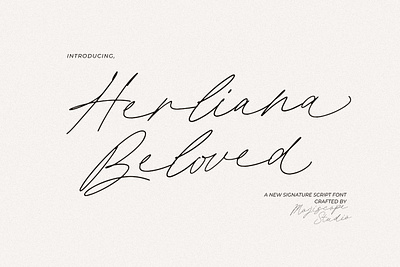 INTRODUCING,
Herliana
Beloved
A NEW SIGNATURE SCRIPT FONT
CRAFTED BY
Studio